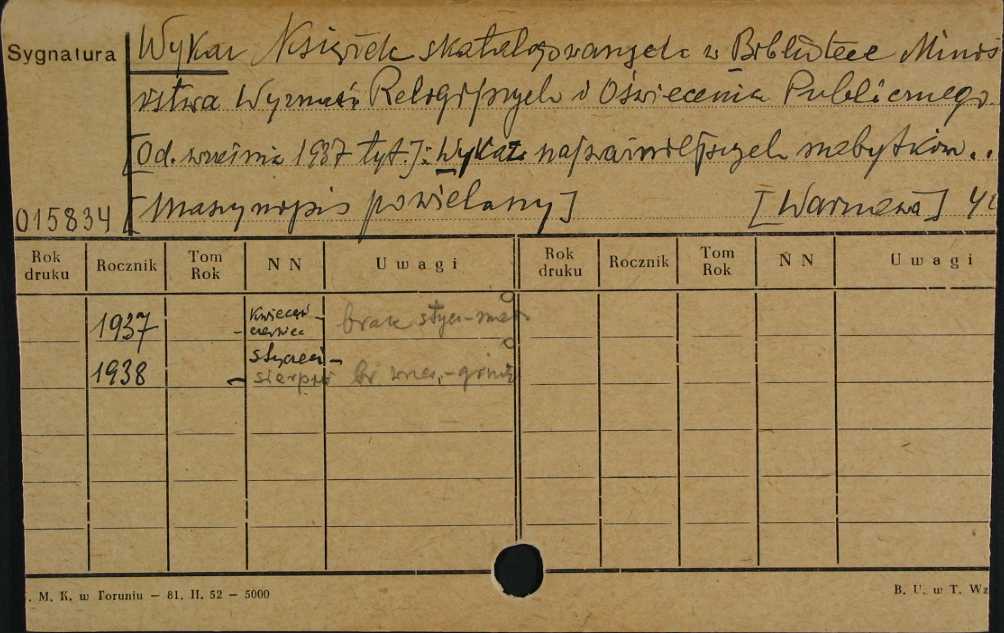 Sygnatura
Wykaz Książek skatalogowanych w Bibliotece Minis
terstwa Wyznań Religijnych i Oświecenia Publicznego.
[Od. września 1937 tyt.]: Wykaz najważniejszych nabytków..
015834 [Maszynopis powielany] [Warszawa]
Rok druku Rocznik Tom Rok N N Uwagi Rok druku Rocznik Tom Rok N N Uwagi
1937 kwiecień - czerwiec brak stycz-marz
1938 styczeń - sierpień br wrzes.-grudz
. M. K. w Toruniu — 81. II. 52 — 5000
B. U. w T. Wz